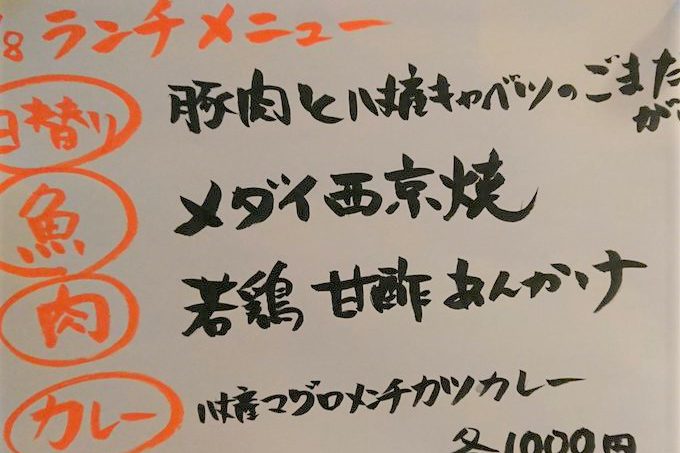 /8 ランチメニュー
日替り 豚肉と八丈産キャベツのごまだ
が
魚 メダイ西京焼
肉 若鶏甘酢あんかけ
カレー 八丈産マグロメンチカツカレー
各1000円